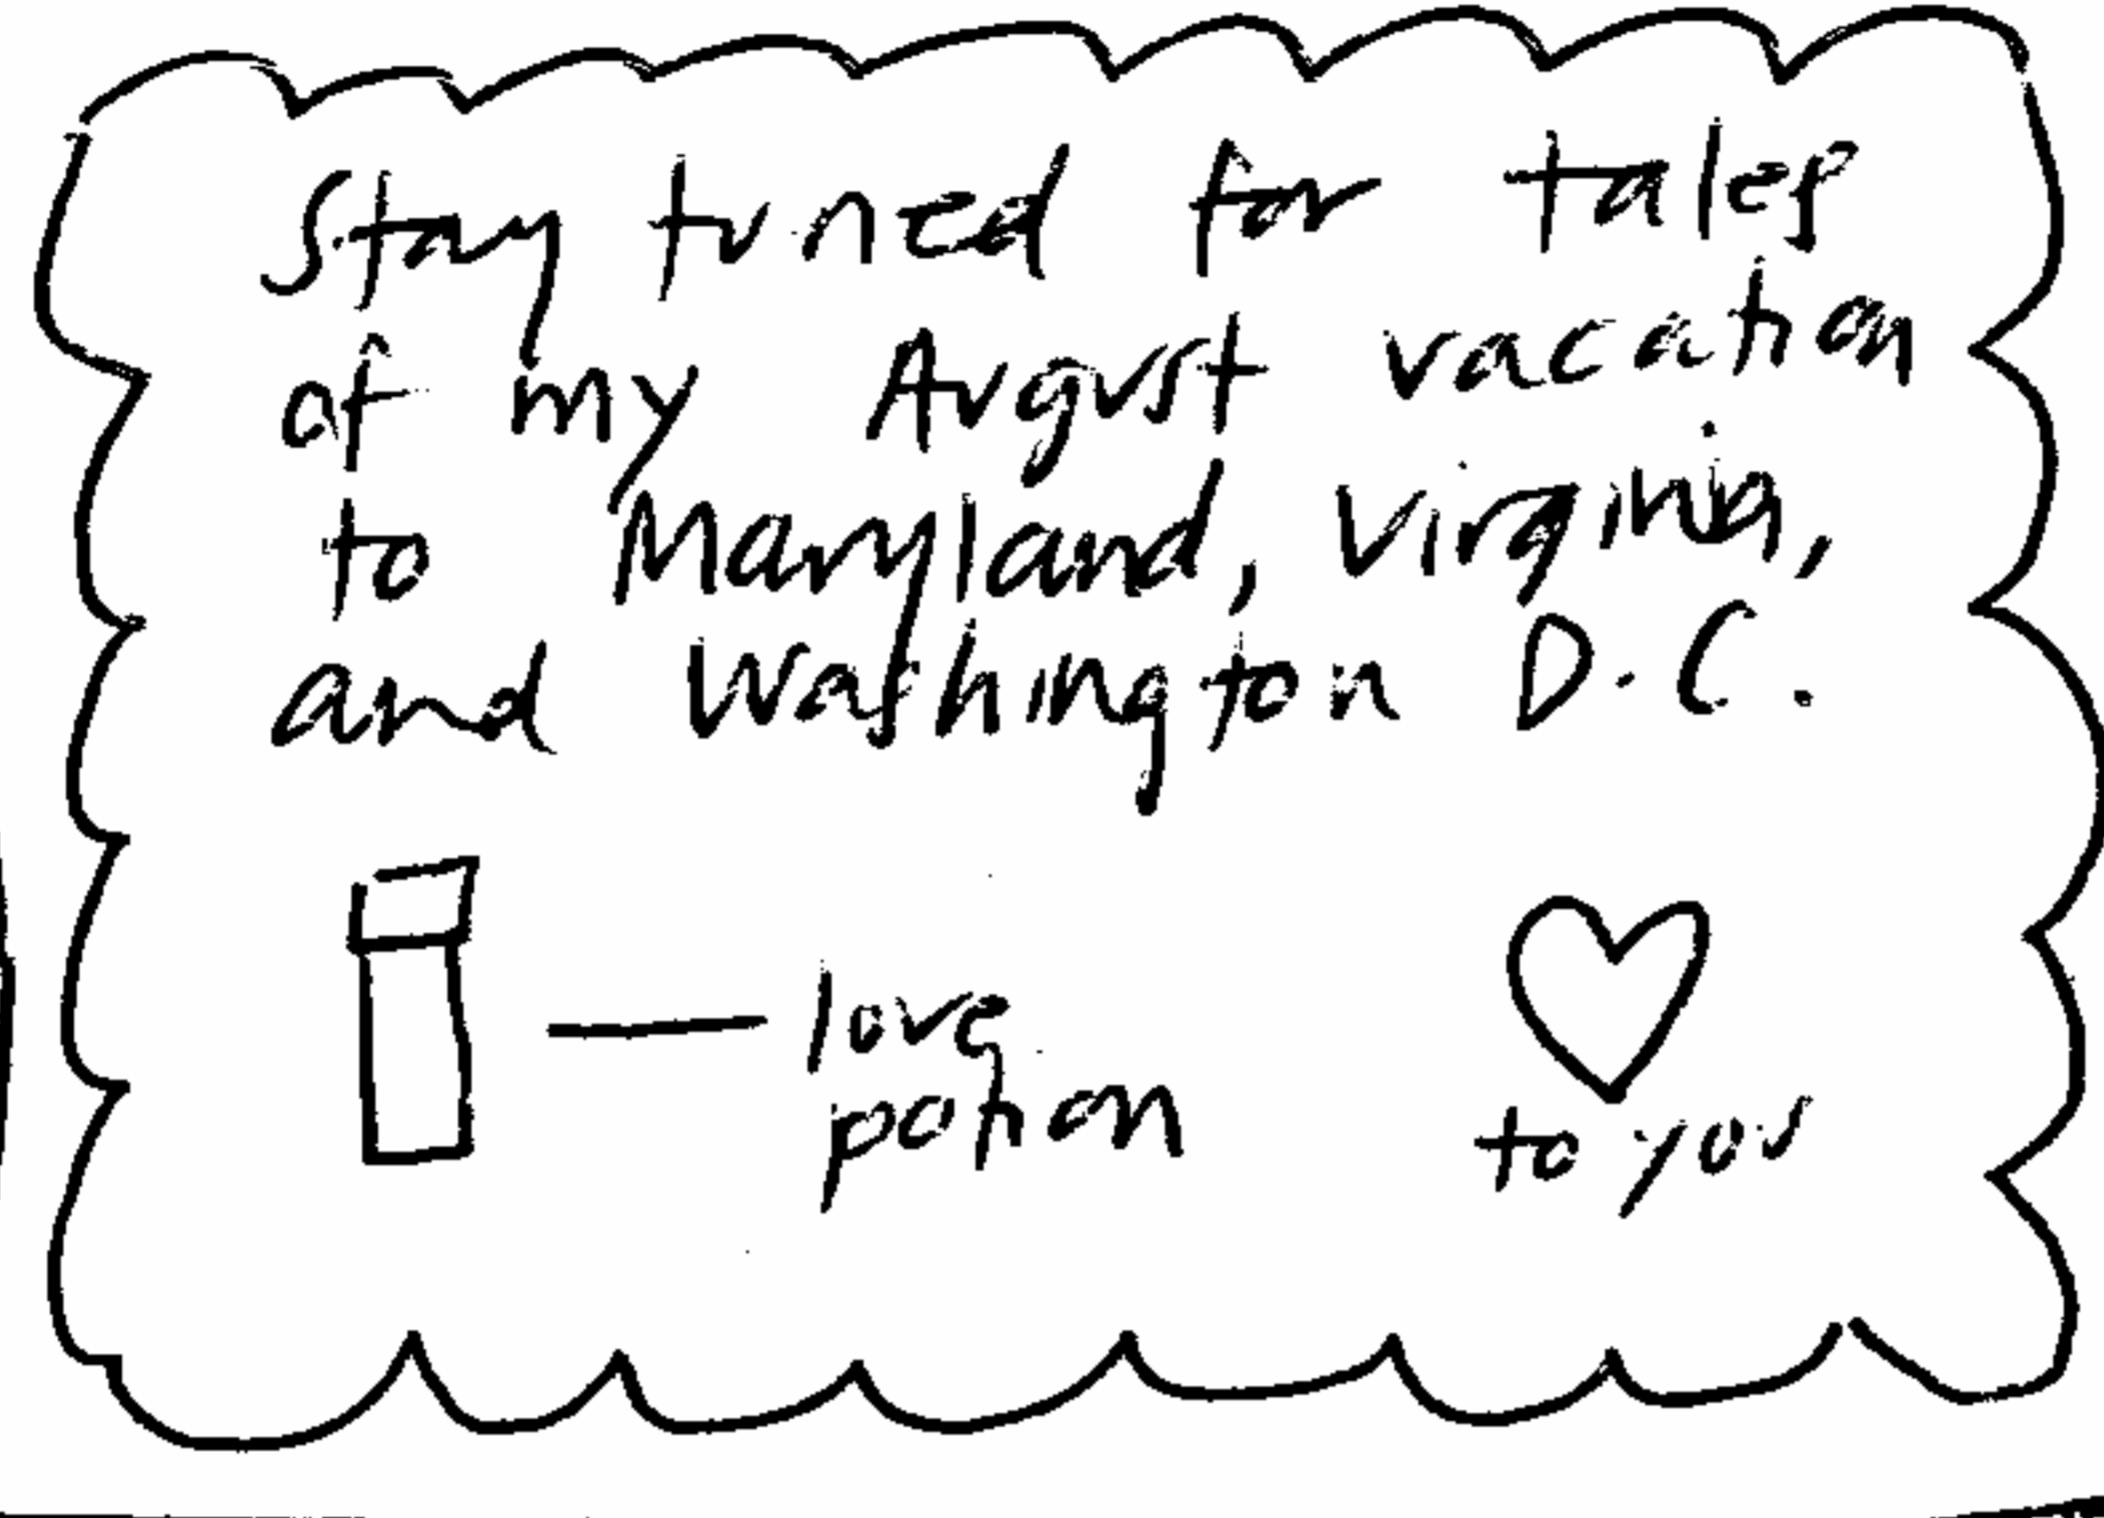 Stay tuned for tales
of my August vacation
to Maryland, Virginia,
and Washington D.C.
love
potion
to you